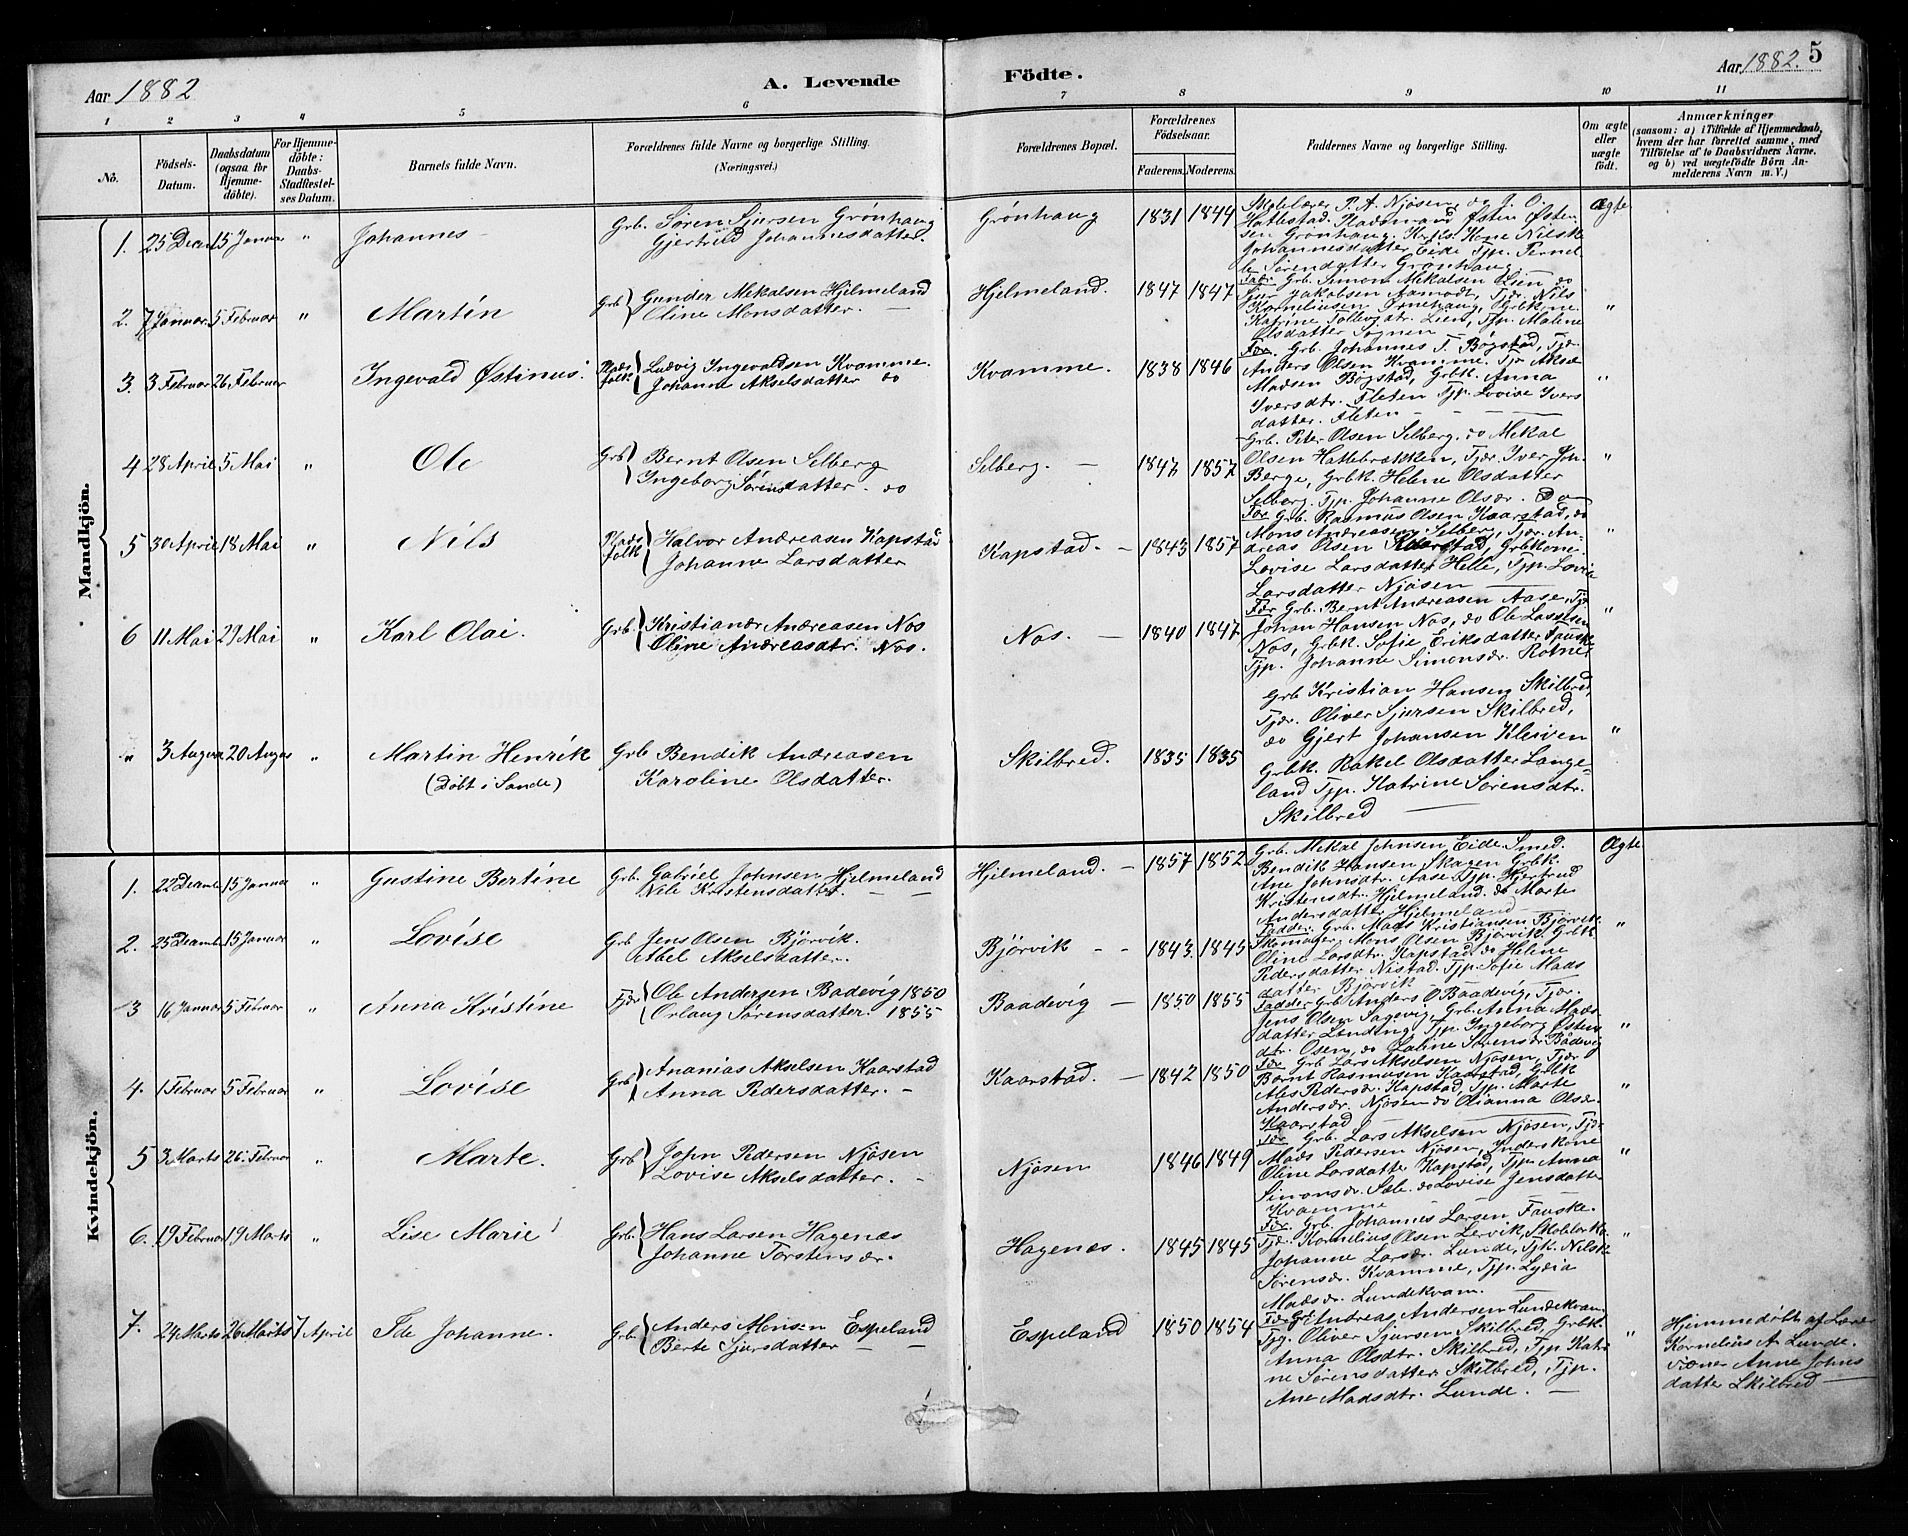 Aar 1882
A. Levende Födte.
Aar 1882. 5
1 2 3 4 5 6 7 8 9 10 11
No.
Födsels-Datum.
Daabsdatum (ogsaa for Hjemme-döbte).
For Hjemme-döbte: Daabs-Stadfestel-ses Datum.
Barnets fulde Navn.
Forældrenes fulde Navne og borgerlige Stilling.
(Næringsvei.)
Forældrenes Bopæl.
Forældrenes Födselsaar.
Faderens. Moderens.
Faddernes Navne og borgerlige Stilling.
Om ægte eller uægte födt.
Anmærkninger
(saasom: a) i Tilfælde af Hjemmedaab, hvem der har forrettet samme, med Tilföielse af to Daabsvidners Navne, og b) ved uægtefödte Börn An-melderens Navn m. V.)
Mandkjön.
1. 25 Decem 15 Januar " Johannes
Grb. Søren Sjursen Grønhaug
Gjertrud Johannesdatter.
Grønhaug 1831 1844
Skolelærer P. A. Njøsen og J. O.
Hatlestad. Pladsmand Østen Østen-
sen Grønhaug. Kone Nilsk
Johannesdatter Eide Tjp. Pernel-
le Sørendatter Grønhaug
Ægte
2. 7 Januar 5 Februar " Martin
Grb Gunder Mekalsen Hjelmeland
Oline Monsdatter.
Hjelmeland. 1847 1847
Fadr Grb. Simon Mekalsen Lien, do
Jakobsen Aamodt, Tjr. Nils
Korneliusen Grbkone
Katrine Tollevsdtr. Lien, Tjp. Malene
Olsdatter Sognen
"
3. 3 Februar 26 Februar " Ingevald Østinus.
Plads folk Ludvig Ingevaldsen Kvamme.
Johanne Akselsdatter do
Kvamme. 1838 1846
Fdr. Grb. Johannes T. Bogstad, Tjr.
Anders Olsen Kvamme. Tjr Aksel
Madsen Bogstad, Grbk. Anna
Iversdtr. Fleten Tjp. Lovise Ivers
datter. Fleten
"
4 28 April 5 Mai " Ole
Grb Bernt Olsen Selberg
Ingeborg Sørensdatter. do
Selberg. 1847 1857
Grb. Peter Olsen Selberg, do Mekal
Olsen Hattebrækken, Tjr. Iver Joh.
Berge, Grbk. Helene Olsdatter
Selberg. Tjp. Johanne Olsdr. do
"
5 30 April 18 Mai " Nils
Plads folk Halvor Andreasen Kapstad
Johanne Larsdatter
Kapstad. 1843 1857
Fdr Grb. Rasmus Olsen Kaarstad, do
Mons Andreasen Selberg, Tjr. An-
dreas Olsen Kaarstad, Grbkone.
Lovise Larsdatter Helle, Tjp. Lovise
Larsdatter Njøsen
"
6 11 Mai 29 Mai " Karl Olai.
Grb. Kristianær Andreasen Nos
Oline Andreasdtr. Nos.
Nos. 1840 1847
Fdr Grb. Bernt Andreasen Aase, Tjr.
Johan Hansen Nos, do Ole Lassesen
Nos, Grbk. Sofie Eriksdatter Fauske
Tjp. Johanne Simonsdr. Rotnes
"
" 3 August 20 August " Martin Henrik
(Døbt i Sande)
Grb Bendik Andreasen
Karoline Olsdatter.
Skilbred. 1835 1835
Grb Kristian Hansen Skilbred
Tjdr. Oliver Sjursen Skilbred,
do Gjert Johansen Kleiven
Grbk. Rakel Olsdatter Lange-
land Tjp. Katrine Sørensdtr.
Skilbred
"
Kvindekjön.
1. 22 Decembr 15 Januar " Gustine Bertine
Grb. Gabriel Johnsen Hjelmeland
Nele Kristensdatter
Hjelmeland. 1857 1852
Grb. Mekal Johnsen Eide Smed.
Bendik Hansen Skagen Grbk.
Ane Johnsdtr. Aase Tjp. Hjertrud
Kristensdtr. Hjelmeland. do Marte
Andersdatter Hjelmeland
Ægte
2. 25 Decembr 15 Januar " Lovise
Grb Jens Olsen Bjørvik.
Abel Akselsdatter.
Bjørvik 1843. 1845
Fadder. Grb. Mads Kristiansen Bjørvik
Skomager Mons Olsen Bjørvik, Grbk
Oline Larsdtr. Kapstad, do Helene
Pedersdatter Nistad. Tjp. Sofie Mads
datter Bjørvik
"
3 16 Januar 5 Februar " Anna Kristine
Tjdr Ole Andersen Badevig 1850
Orlaug Sørensdatter 1855
Baadevig 1850 1855
Fadder Grb Anders O Baadevig, Tjdr.
Jens Olsen Sagevig, Grb. Anna Mads
datter Tjp. Ingeborg Østens
dtr. Osen, do Sørensdr. Badevig
"
4. 1 Februar 5 Februar " Lovise
Grb Ananias Akselsen Kaarstad
Anna Pedersdatter.
Kaarstad. 1842 1850
Fdr. Grb Lars Akselsen Njøsen, Tjdr
Bernt Rasmusen Kaarstad, Grbk
Ales Pedersdr. Kapstad, Tjp. Marte
Andersdr. Njøsen do Olianna Olsdr.
Kaarstad
"
5 3 Marts 26. Februar " Marte.
Grb John Pedersen Njøsen
Lovise Akselsdatter.
Njøsen 1846 1849
Fdr. Grb. Lars Akselsen Njøsen, Tjdr
Mads Pedersen Njøsen, Inderskone
Oline Larsdatter Kapstad, Tjp. Anna
Simonsdr. Sæle. do Lovise Jensdatter
Kvamme
"
6. 19 Februar 19 Marts " Lise Marie
Grb. Hans Larsen Hagenæs
Johanne Torstensdr.
Hagenæs. 1845 1845
Fdr. Grb. Johannes Larsen Fauske.
Tjdr. Kornelius Olsen Lervik,
Johanne Larsdr. Lunde, Tjk. Nilsk
Sørensdr. Kvamme, Tjp. Lydia
Madsdr. Lundekvam.
"
7. 24 Marts 26 Marts 7 April Ide Johanne.
Grb. Anders Monsen Espeland
Berte Sjursdatter
Espeland 1850 1854
Fdr Grb Andreas Andersen Lundekvam
Tjg. Oliver Sjursen Skilbred, Grbk.
Anna Olsdtr. Skilbred, Tjp Katri
ne Sørensdatter Skilbred, Tjp.
Ane Madsdtr. Lunde.
"
Hjemmedøbt af Lærer
Kornelius A. Lunde.
Anne Johns
datter Skilbred